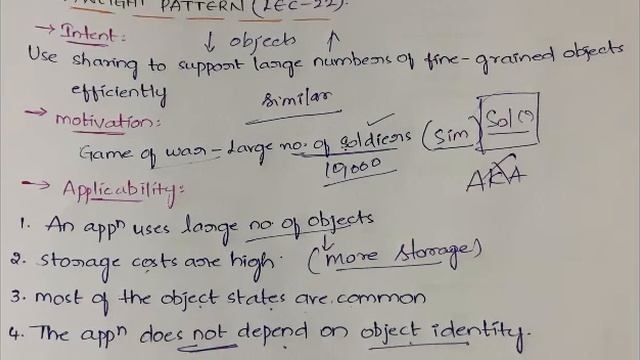 PATTERN (LEC-22):
→ Intent:
↓ objects ↑
Use sharing to support large numbers of fine-grained objects
efficiently
similar
→ motivation:
Game of war - Large no. of soldiers (sim) Sol()
10,000
AKA
→ Applicability:
1. An appn uses large no of objects
2. storage costs are high. (more storage)
3. most of the object states are common
4. The appn does not depend on object identity.